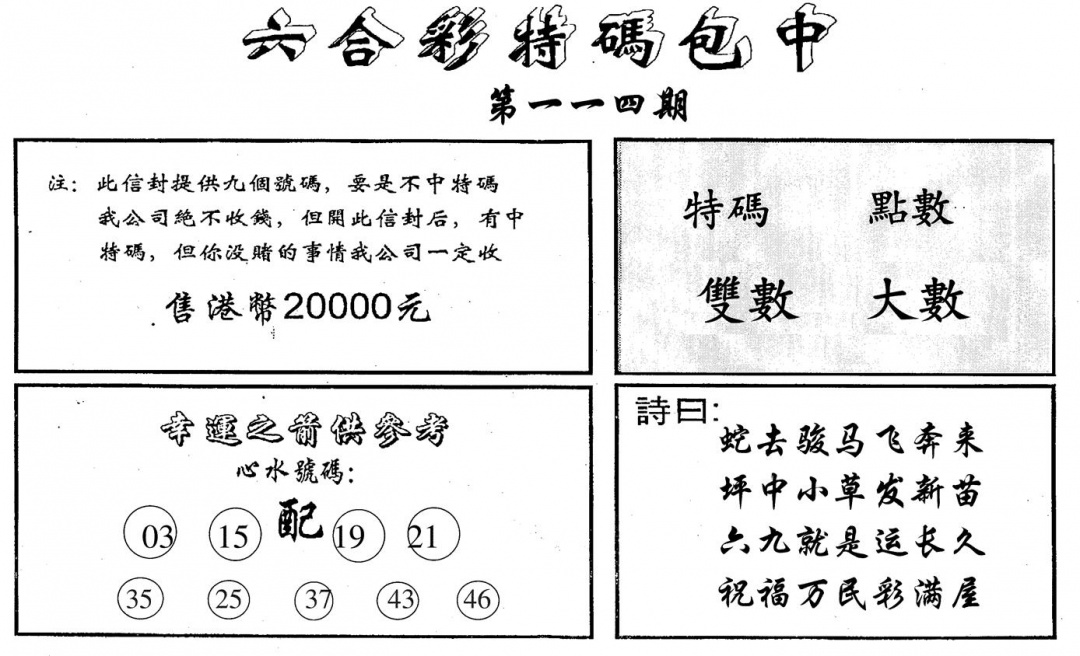 六合彩特碼包中
第一一四期
注：此信封提供九個號碼，要是不中特碼
我公司絕不收錢，但開此信封后，有中
特碼，但你没賭的事情我公司一定收
售港幣20000元
特碼 點數
雙數 大數
幸運之箭供參考
心水號碼：
配
03 15 19 21
35 25 37 43 46
詩曰：
蛇去骏马飞奔来
坪中小草发新苗
六九就是运长久
祝福万民彩满屋